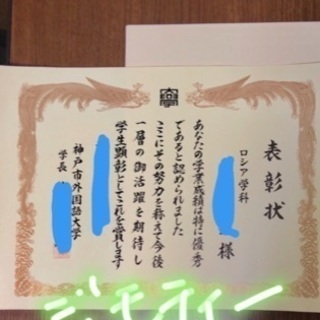 表彰状
ロシア学科
様
あなたの学業成績は特に優秀
であると認められました
ここにその努力を称えて今後
一層の御活躍を期待し
学生顕彰としてこれを賞します
神戸市外国語大学
学長
ジモティー